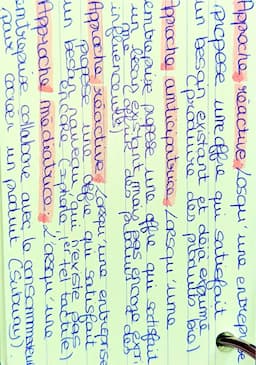 Approche réactive / Lorsqu'une entreprise
propose une offre qui satisfait
un besoin existant et déjà exprimé
(création des produits bio)
Approche anticipatrice / Lorsqu'une
entreprise propose une offre qui satisfait
un besoin existant mais pas encore ex
primé
Approche créatrice / Lorsqu'une entreprise
propose une offre qui satisfait
un besoin nouveau qui n'existe pas
encore
Approche médiatrice : Lorsqu'une
entreprise collabore avec le consommateur
pour un produit